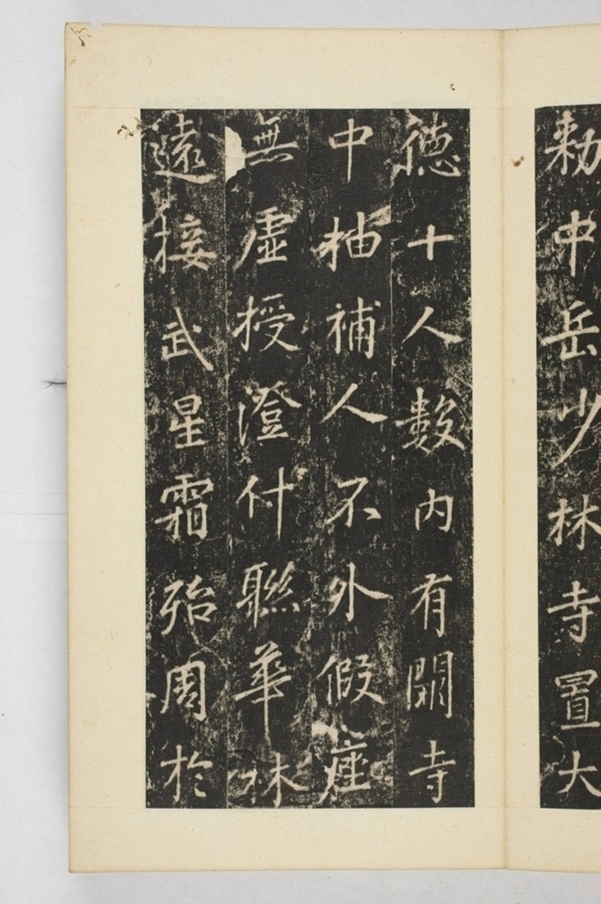 勅中岳少林寺置大
德十人數内有闕寺
中抽補人不外假座
無虛授澄付聯華林
遠接武星霜殆周於